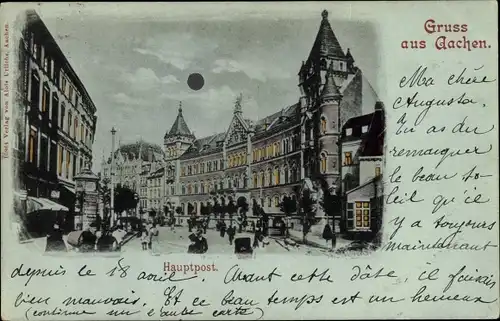 Gruss
aus Aachen.
Verlag von Alois Ullichs, Aachen.
Ma chère
Augusta.
Tu as du
remarquer
le beau so-
leil qu'il
y a toujours
maintenant
Hauptpost.
depuis le 18 avril. Avant cette date, il faisait
bien mauvais. Et ce beau temps est un heureux
(continue sur l'autre carte)